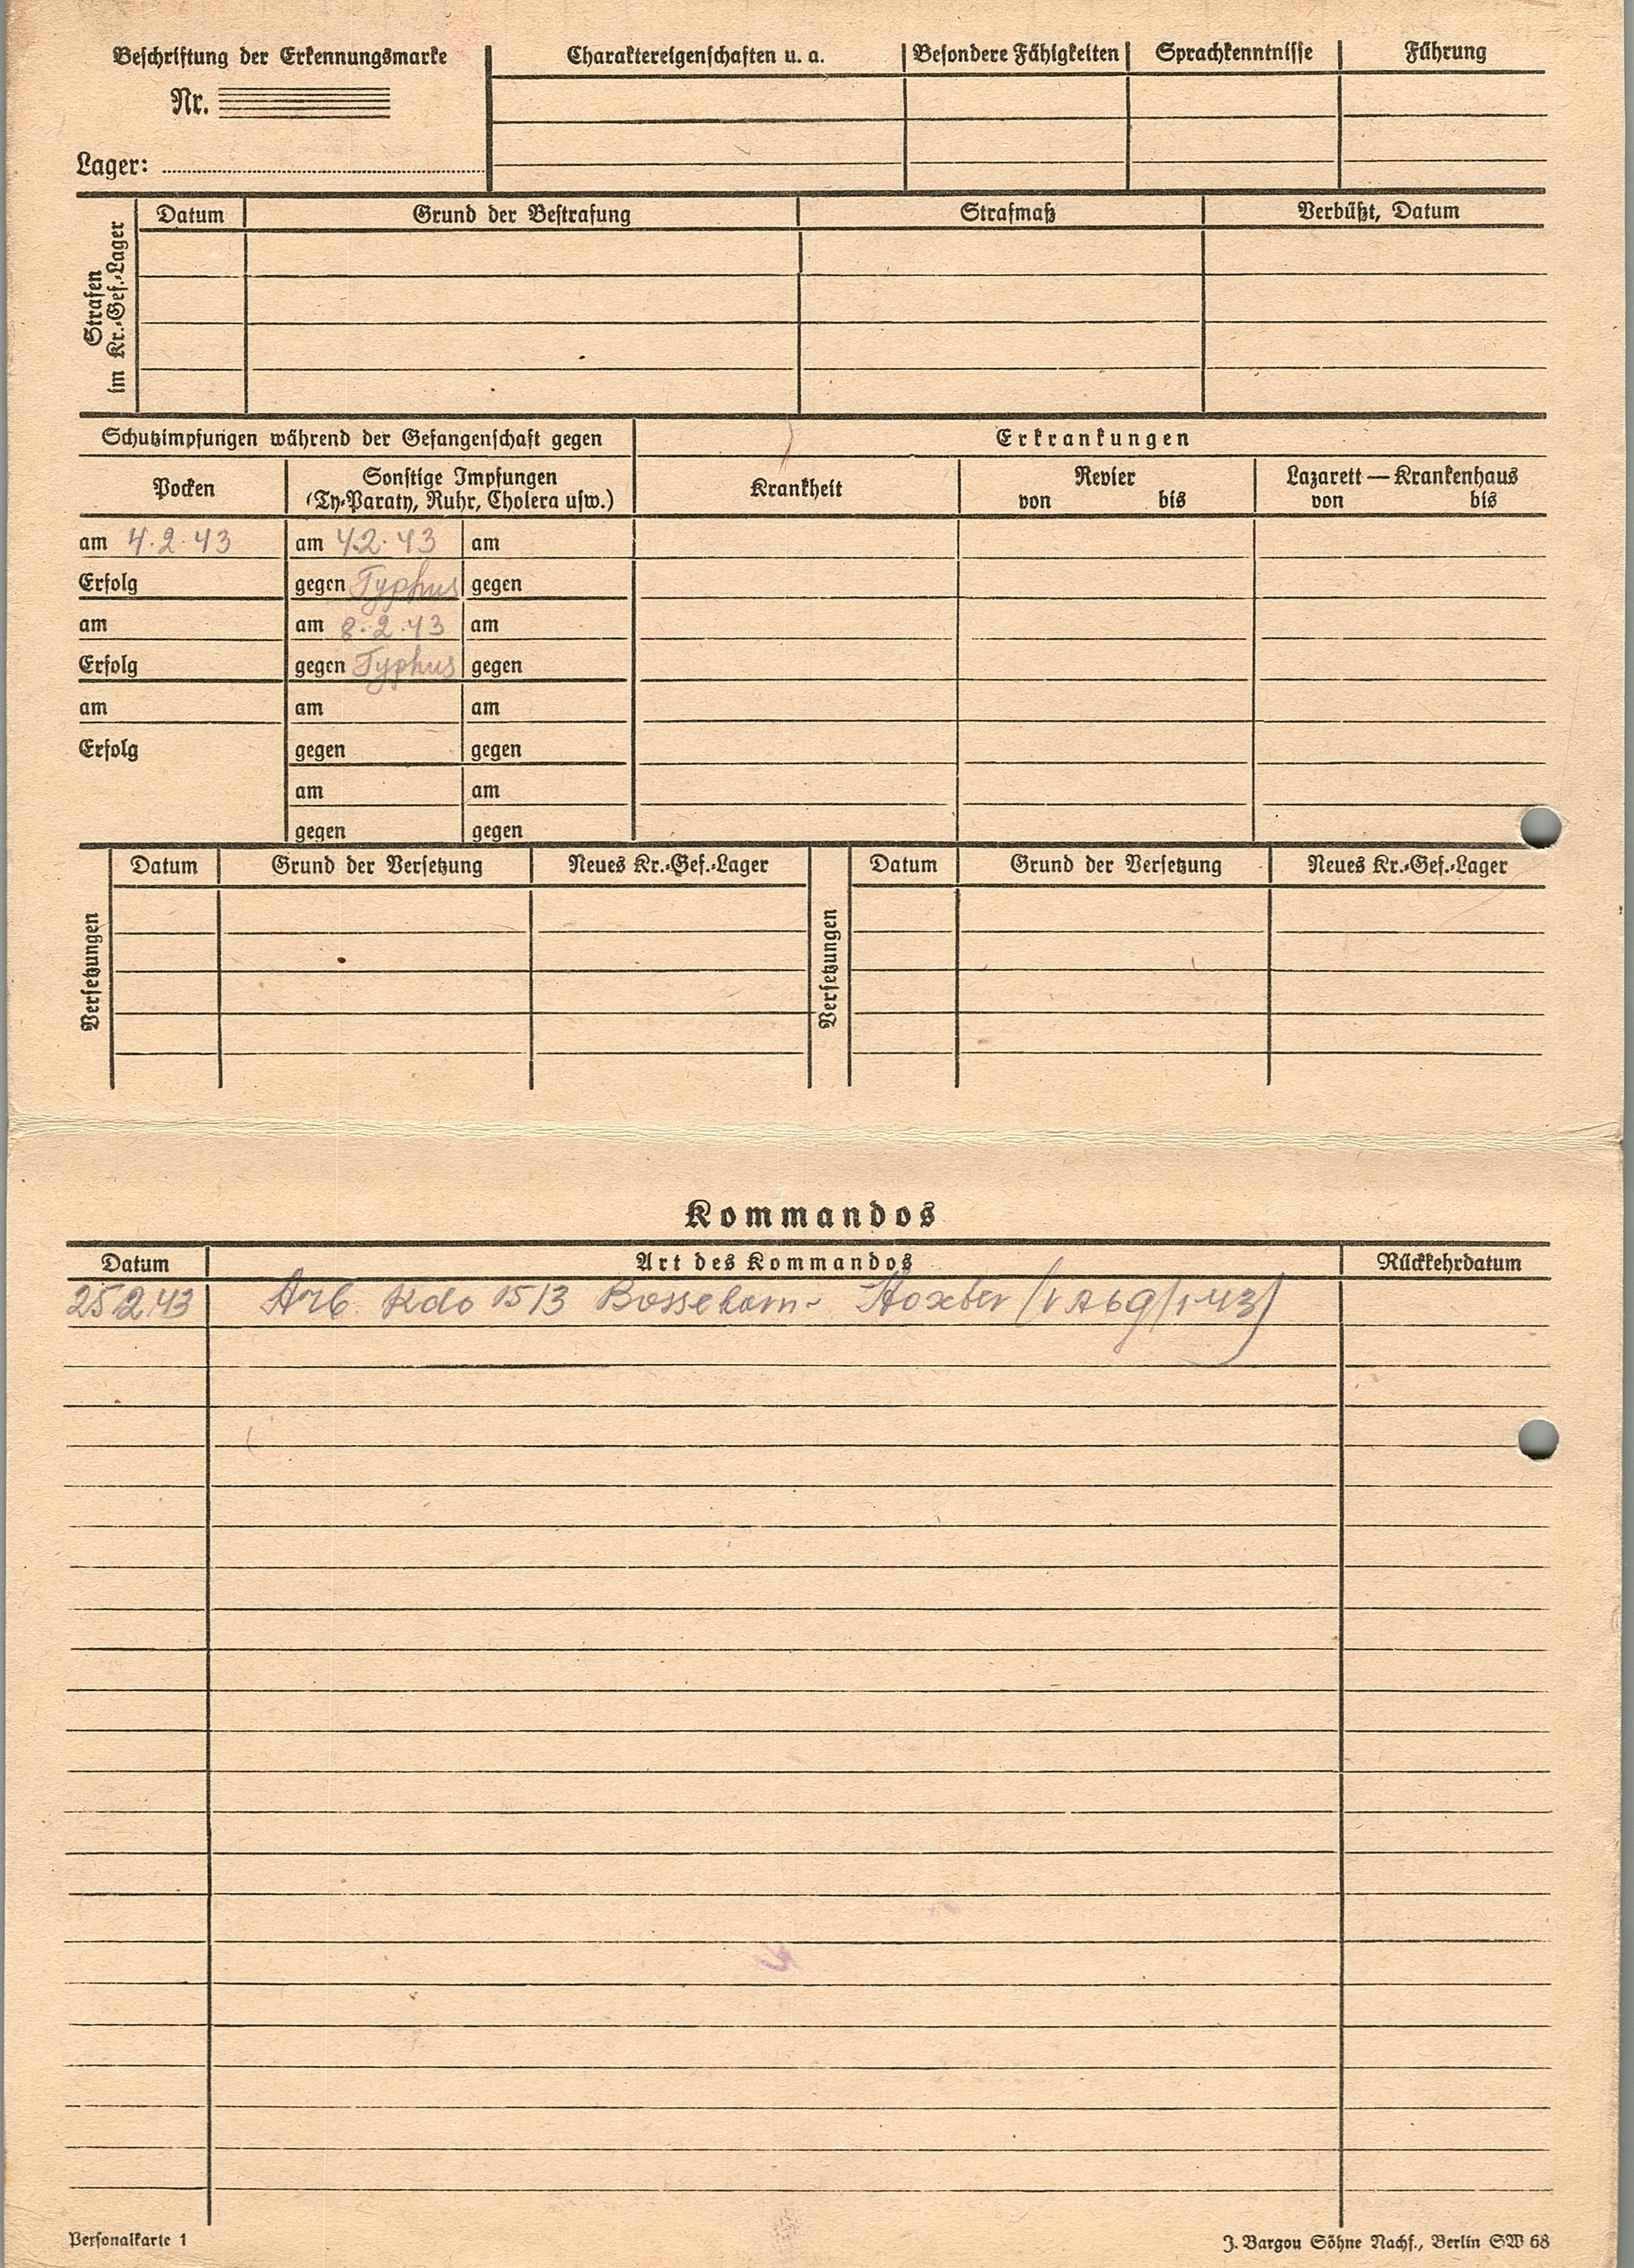 Beschriftung der Erkennungsmarke
Nr.
Lager:
Charaktereigenschaften u. a. Besondere Fähigkeiten Sprachkenntnisse Führung
Strafen im Kr.-Gef.-Lager
Datum Grund der Bestrafung Strafmaß Verbüßt, Datum
Schutzimpfungen während der Gefangenschaft gegen
Erkrankungen
Pocken
Sonstige Impfungen
(Ty-Paraty, Ruhr, Cholera usw.)
Krankheit
Revier
von bis
Lazarett — Krankenhaus
von bis
am 4.2.43 am 4.2.43 am
Erfolg gegen Typhus gegen
am am 8.2.43 am
Erfolg gegen Typhus gegen
am am am
Erfolg gegen gegen
am am
gegen gegen
Versetzungen
Datum Grund der Versetzung Neues Kr.-Gef.-Lager
Versetzungen
Datum Grund der Versetzung Neues Kr.-Gef.-Lager
Kommandos
Datum Art des Kommandos Rückkehrdatum
25.2.43 Arb. Kdo 1513
Personalkarte 1
J. Bargou Söhne Nachf., Berlin SW 68